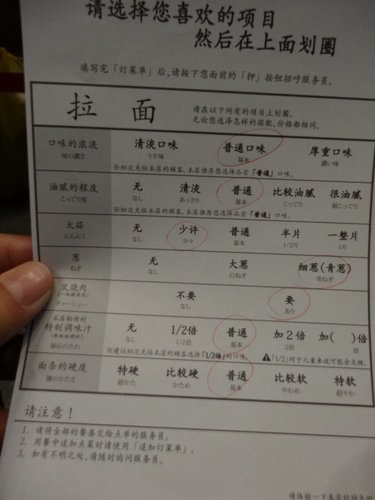 请选择您喜欢的项目
然后在上面划圈
填写完「订菜单」后,请按下您面前的「押」按钮招呼服务员。
拉 面
请在以下所有的项目上划圈。
无论您选择怎样的搭配,价格都相同。
口味的浓淡 清淡口味 普通口味 厚重口味
味の濃さ うす味 基本 濃い味
※初次光临本店的顾客,本店推荐您选择品尝「普通」口味。
油腻的程度 无 清淡 普通 比较油腻 很油腻
こってり度 なし あっさり 基本 こってり 超こってり
※初次光临本店的顾客,本店推荐您选择品尝「普通」口味。
大蒜 无 少许 普通 半片 一整片
にんにく なし 少々 基本 1/2片 1片
葱 无 大葱 细葱(青葱)
ねぎ なし 白ねぎ 青ねぎ
叉烧肉 不要 要
チャーシュー なし あり
本店秘传的
特制调味汁 无 1/2倍 普通 加2倍 加( )倍
秘伝のたれ なし 1/2倍 基本 2倍 倍
※建议初次光临本店的顾客选择「1/2倍」的口味。 「1/2」对于儿童来说可能会太辣。
面条的硬度 特硬 比较硬 普通 比较软 特软
麺のかたさ 超かた かため 基本 やわめ 超やわ
请注意!
1. 请将全部的餐券交给点单的服务员。
2. 用餐中追加点菜时请使用「追加订菜单」。
3. 如有不明之处,请随时询问服务员。